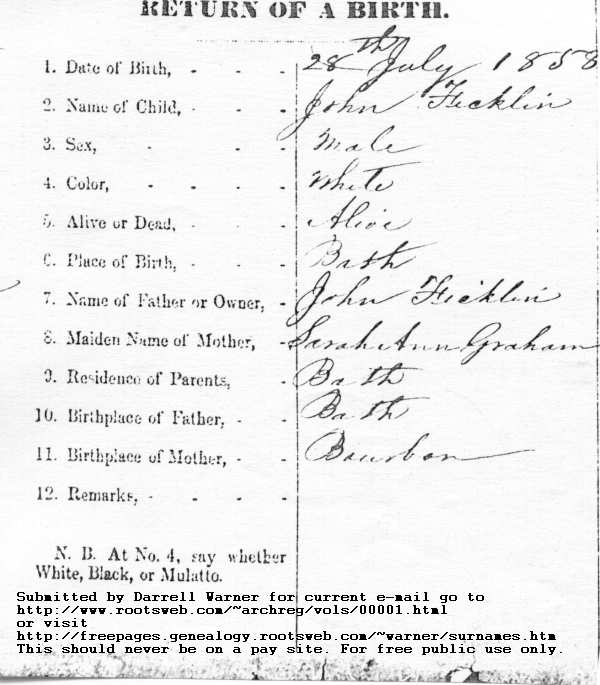 RETURN OF A BIRTH.
1. Date of Birth, - - - 28th July 1858
2. Name of Child, - - - John Ficklin
3. Sex, - - - Male
4. Color, - - - - White
5. Alive or Dead, - - - Alive
6. Place of Birth, - - - Bath
7. Name of Father or Owner, - John Ficklin
8. Maiden Name of Mother, - Sarah Ann Graham
9. Residence of Parents, - Bath
10. Birthplace of Father, - - Bath
11. Birthplace of Mother, - - Bourbon
12. Remarks, - - - -
N. B. At No. 4, say whether
White, Black, or Mulatto.
Submitted by Darrell Warner for current e-mail go to
http://www.rootsweb.com/~archreg/vols/00001.html
or visit
http://freepages.genealogy.rootsweb.com/~warner/surnames.htm
This should never be on a pay site. For free public use only.